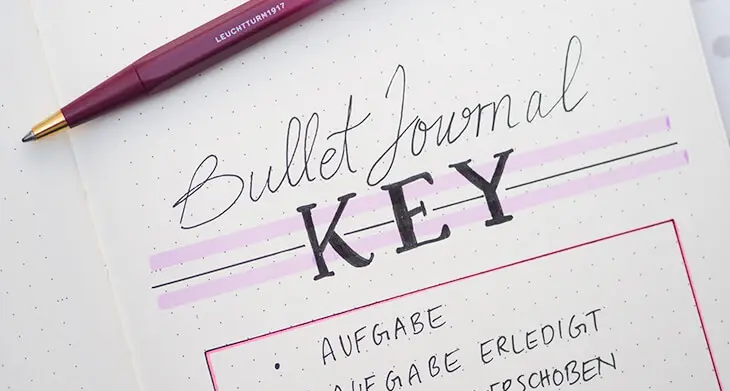 LEUCHTTURM1917
Bullet Journal
KEY
• AUFGABE
AUFGABE ERLEDIGT